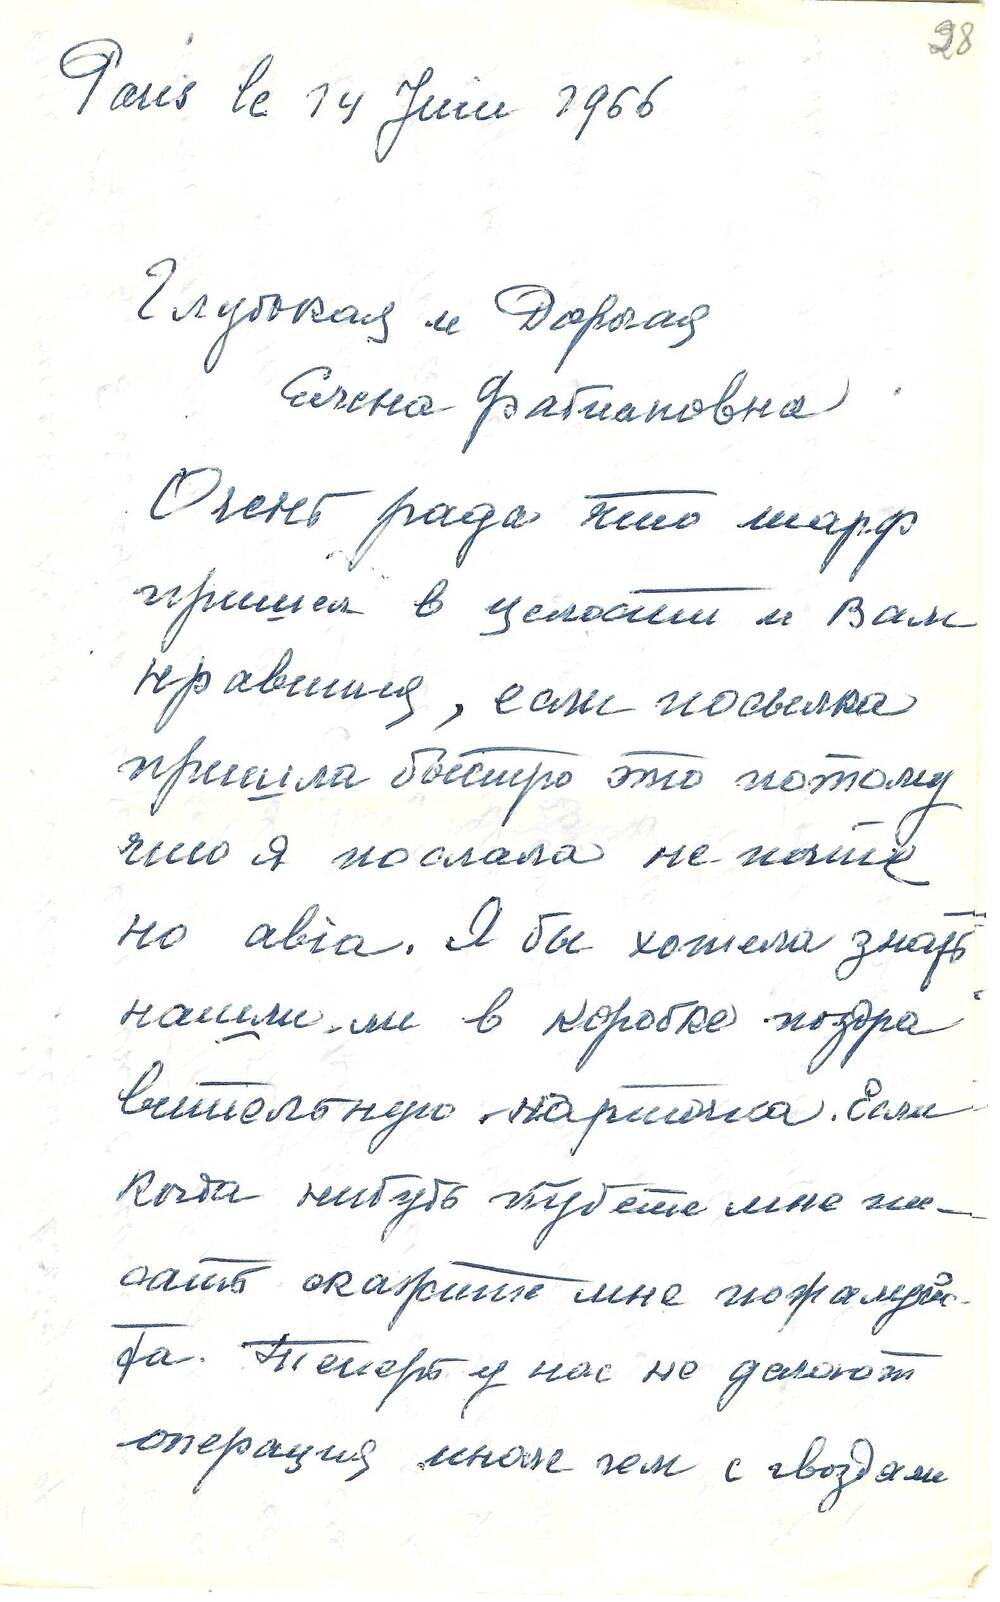 28
Paris le 14 Juin 1966
Глубокая и Дорогая
Елена Фабиановна
Очень рада что шарф
пришел в целости и Вам
нравится, если посылка
пришла быстро это потому
что я послала не почте
но авiа. Я бы хотела знать
нашли-ли в коробке поздра
вительную карточка. Если
когда нибудь будете мне пи-
сать скажите мне пожалуйс-
та. Теперь у нас не делают
операция иначе чем с гвоздам